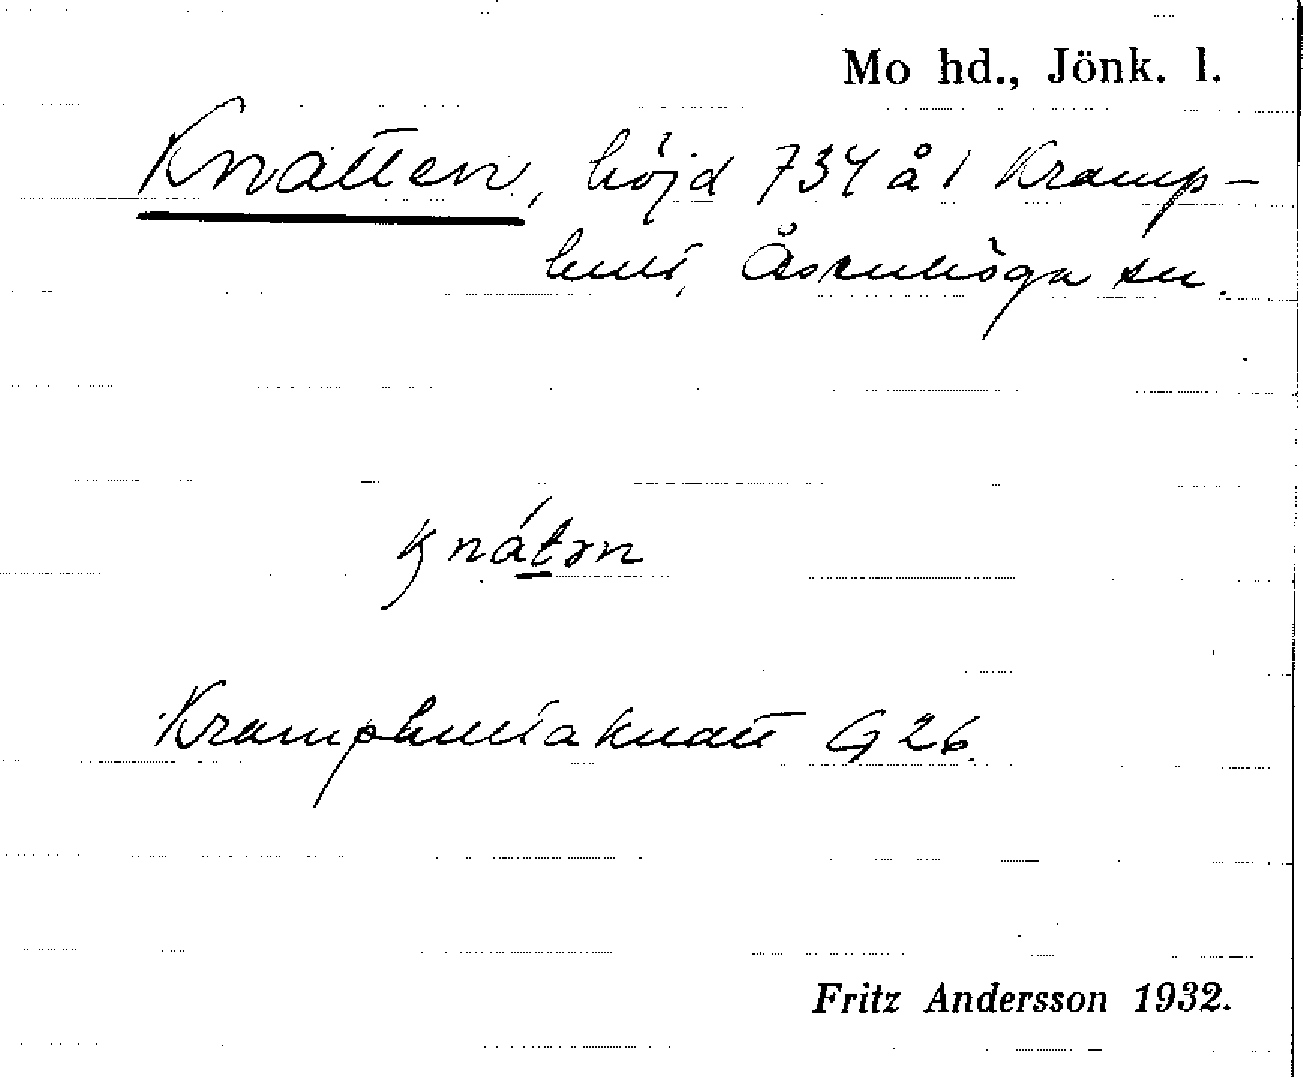 Mo hd., Jönk. l.
Knatten, höjd 734 å 1 Kramp-
hult, Åsenhöga sn.
knátɘn
Kramphultaknatt G 26.
Fritz Andersson 1932.